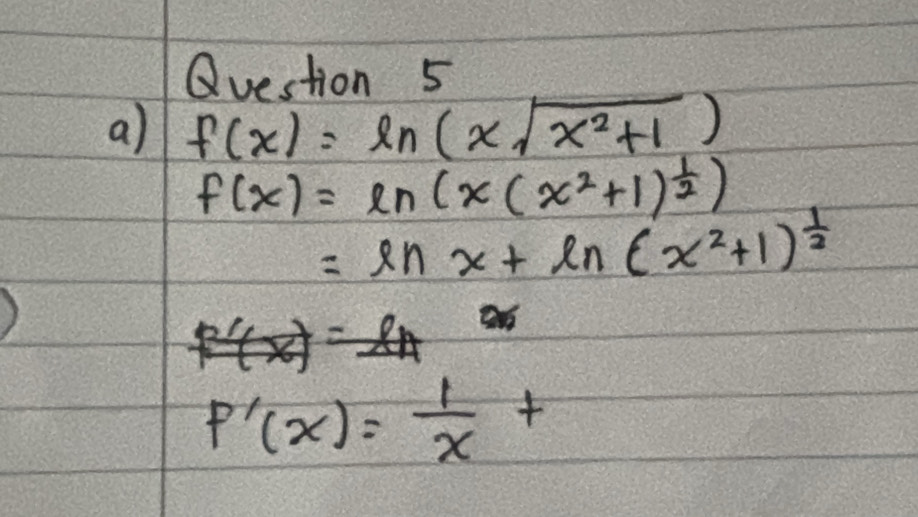 Question 5
a) f(x) = ln(x√(x²+1))
f(x) = ln(x(x²+1)^½)
= ln x + ln(x²+1)^½
f'(x) = ln
f'(x) = 1/x +